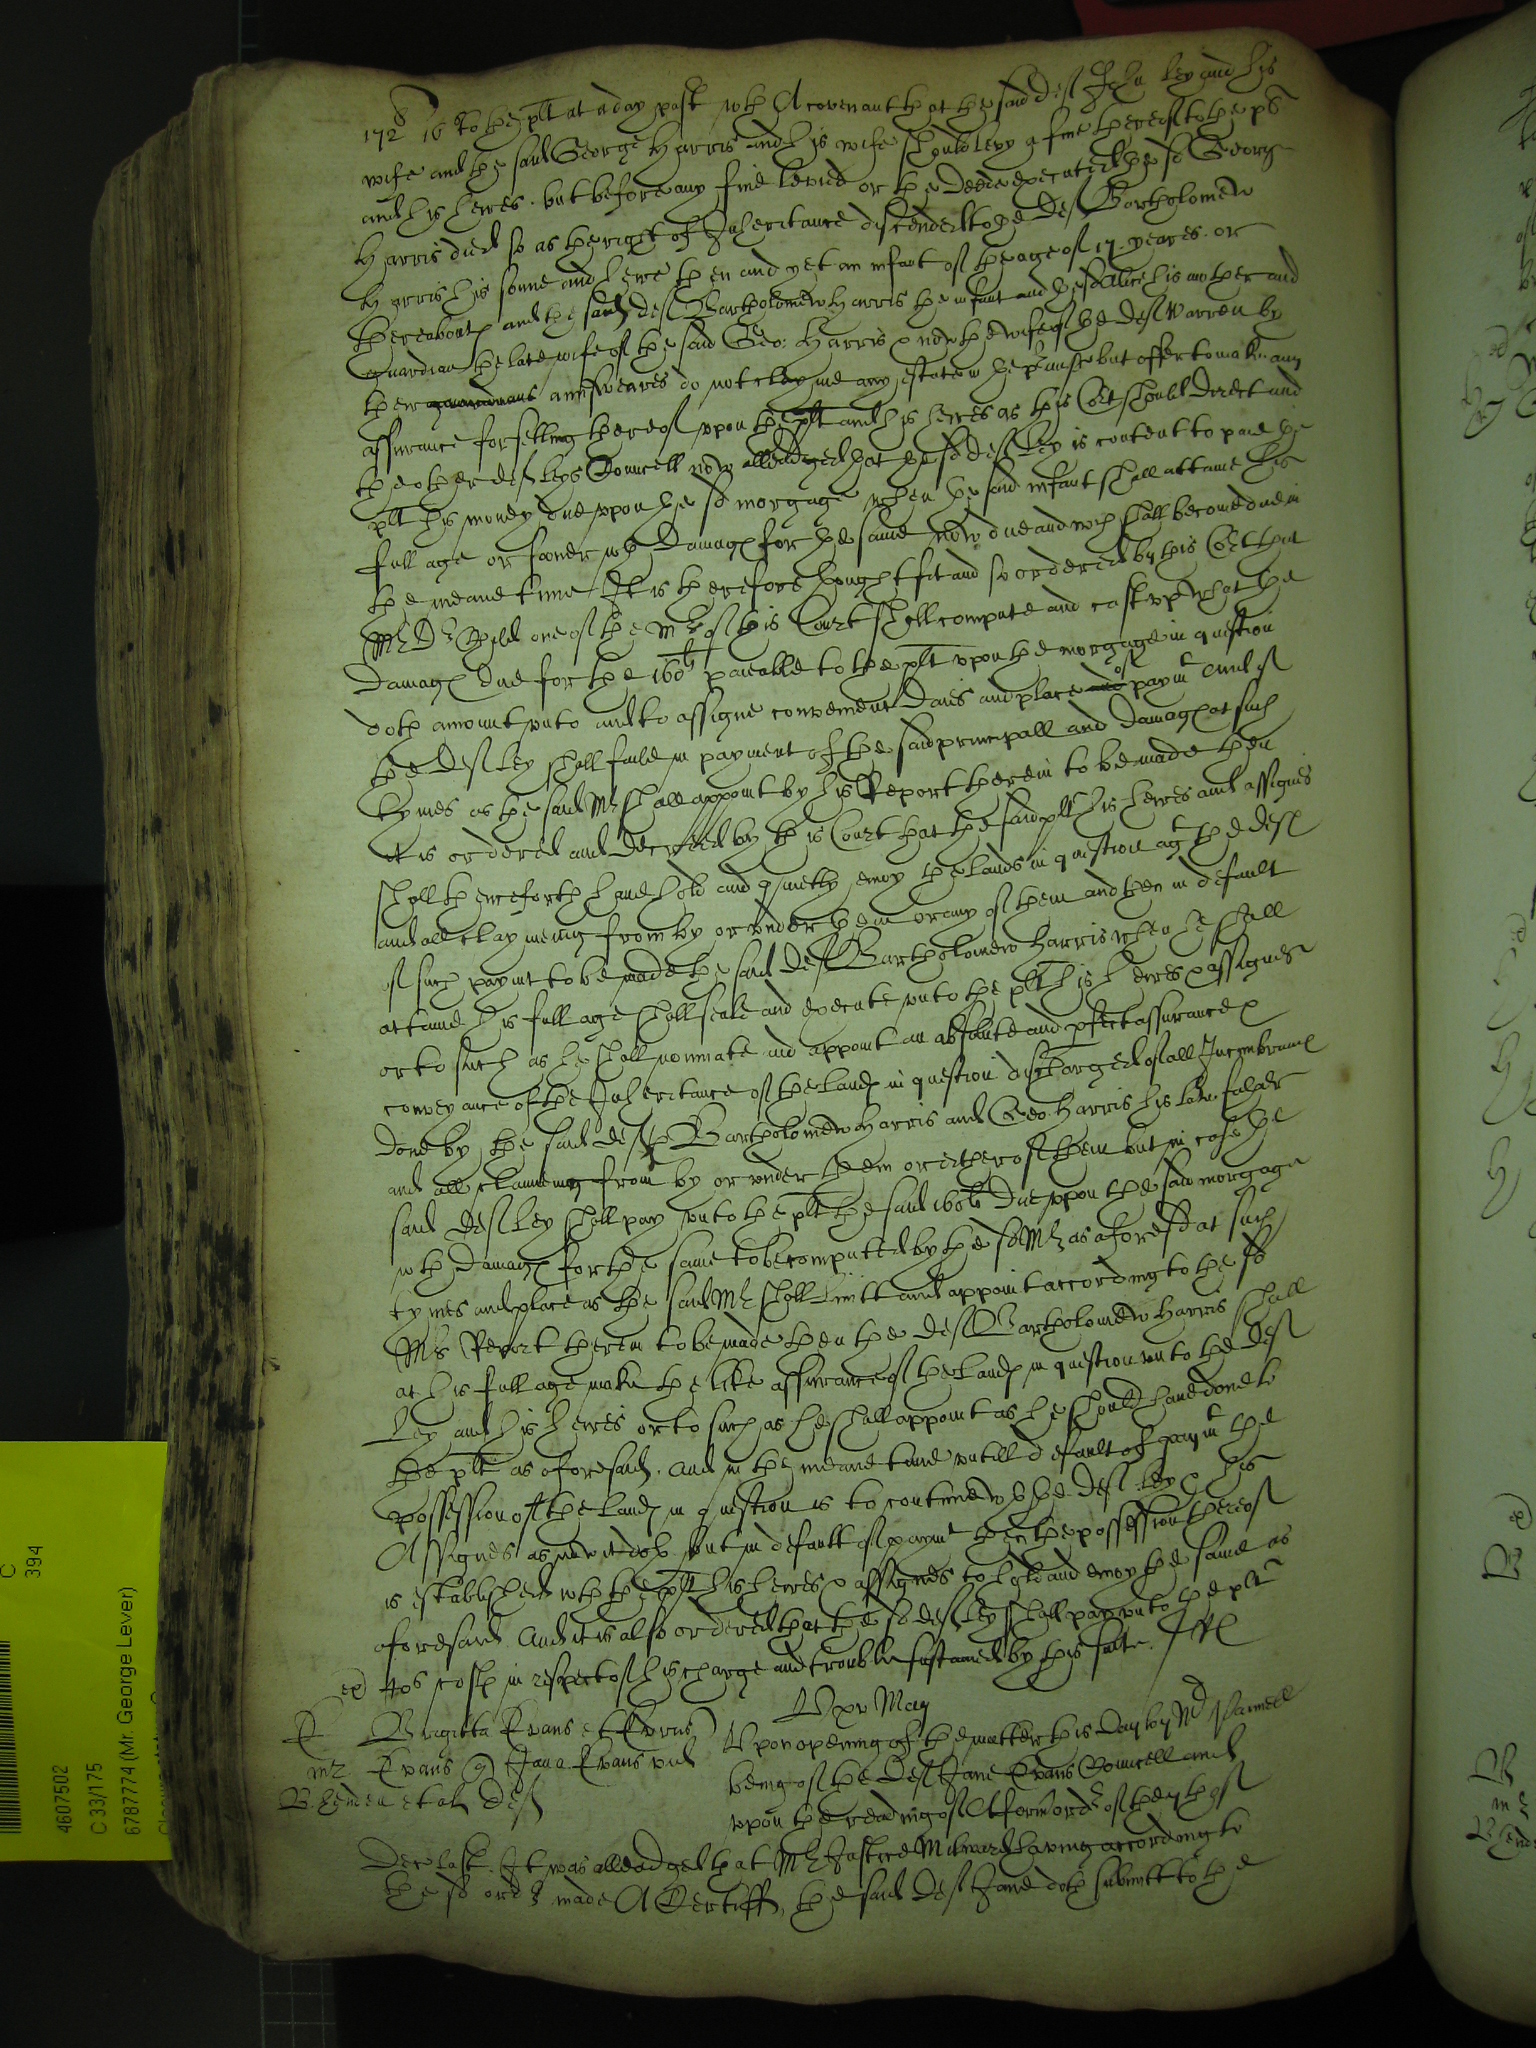 172li 16s to the plt at a day past wth A covenant that the said deft John Ley and his
wife and the said George Harris and his wife should levy a fine thereof to the plt
and his heires . but before any fine levied or the deede executed the sd George
Harris died so as the right of Inheritance discended to the deft Bartholomew
Harris his sonne and heire then and yet an infant of the age of 17. yeares . or
thereabouts and the said deft Bartholomew Harris the infant and the sd Alice his mother and
guardian the late wife of the said Geo: Harris & now the wife of the deft Warren by
their answeares do not clayme any estate in the prmisses but offer to make any
assurance for selling thereof upon the plt and his heires as this Court should direct and
the other deft Leys Councell now alleadged that the sd deft Ley is content to paie the
plt his money due upon the sd morgage when the said infant shall attaine his
full age or sooner wth damages for the same now due and wch shall become due in
the meane tyme It is therefore thought fit and so ordered by this Court that
Mr Dr one of the Mrs of this Court shall compute and cast up what the
damages due for the 160li payable to the plt upon the morgage in question
doth amount unto and to assigne convenient daies and place of paymt and if
the deft Ley shall faile in payment of the said principall and damages at such
tymes as the said Mr shall appoint by his Report therein to be made then
it is ordered and decreed by this Court that the said plt his heires and assignes
shall thenceforth have hold and quietly enjoy the lands in question agt the deft
and all clayming from by or under them or any of them and then in default
of such paymt to be made the said deft Bartholomew Harris when he shall
attaine his full age shall seale and execute unto the plt his heires & assignes
or to such as he shall nominate and appoint an absolute and pfect assurance &
conveyance of the Inheritance of the lands in question discharged of all Incumbrances
done by the said deft Bartholomew Harris and Geo. Harris his late father
and all claimeing from by or under them or either of them but in case the
said deft Ley shall pay unto the plt the said 160li due upon the said morgage
wth damages for the same to be computed by the sd Mr as aforesd at such
tymes and place as the said Mr shall limitt and appoint according to the sd
Mrs Report therein to be made then the deft Bartholomew Harris shall
at his full age make the like assurance of the lands in question unto the deft
Ley and his heires or to such as he shall appoint as he should have done to
the plt as aforesaid . And in the meane tyme untill default of paymt the
possession of the lands in question is to continew wth the deft Ley & his
Assignes as now it doth but in default of paymt then the possession thereof
is established wth the plt his heires & assignes to hold and enjoy the same as
aforesaid And it is also ordered that the sd deft Ley shall pay unto the plt
40s costs in respect of his charge and trouble sustained by this suite .
Brigitta Evans et
Evans Jana Evans vid
et al deft
xv May
Upon opening of the matter this day by Mr
being of the deft Jane Evans Councell and
upon the reading of A former ordr of the 7th of
Dec last It was alleadged that Mr Justice Milward having according to
the sd ordr made A Certiff, the said deft Jane doth submitt to the
4607502
C 33/175
6787774 (Mr. George Lever)
C
394